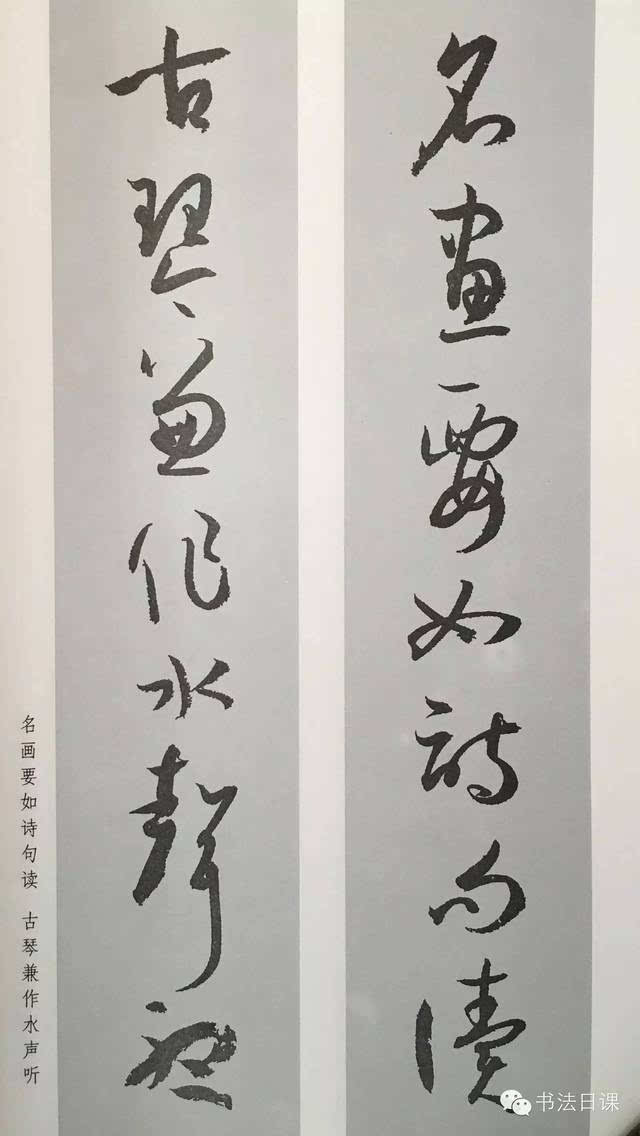 名畫要如詩句讀
古琴兼作水聲聽
名画要如诗句读 古琴兼作水声听
书法日课